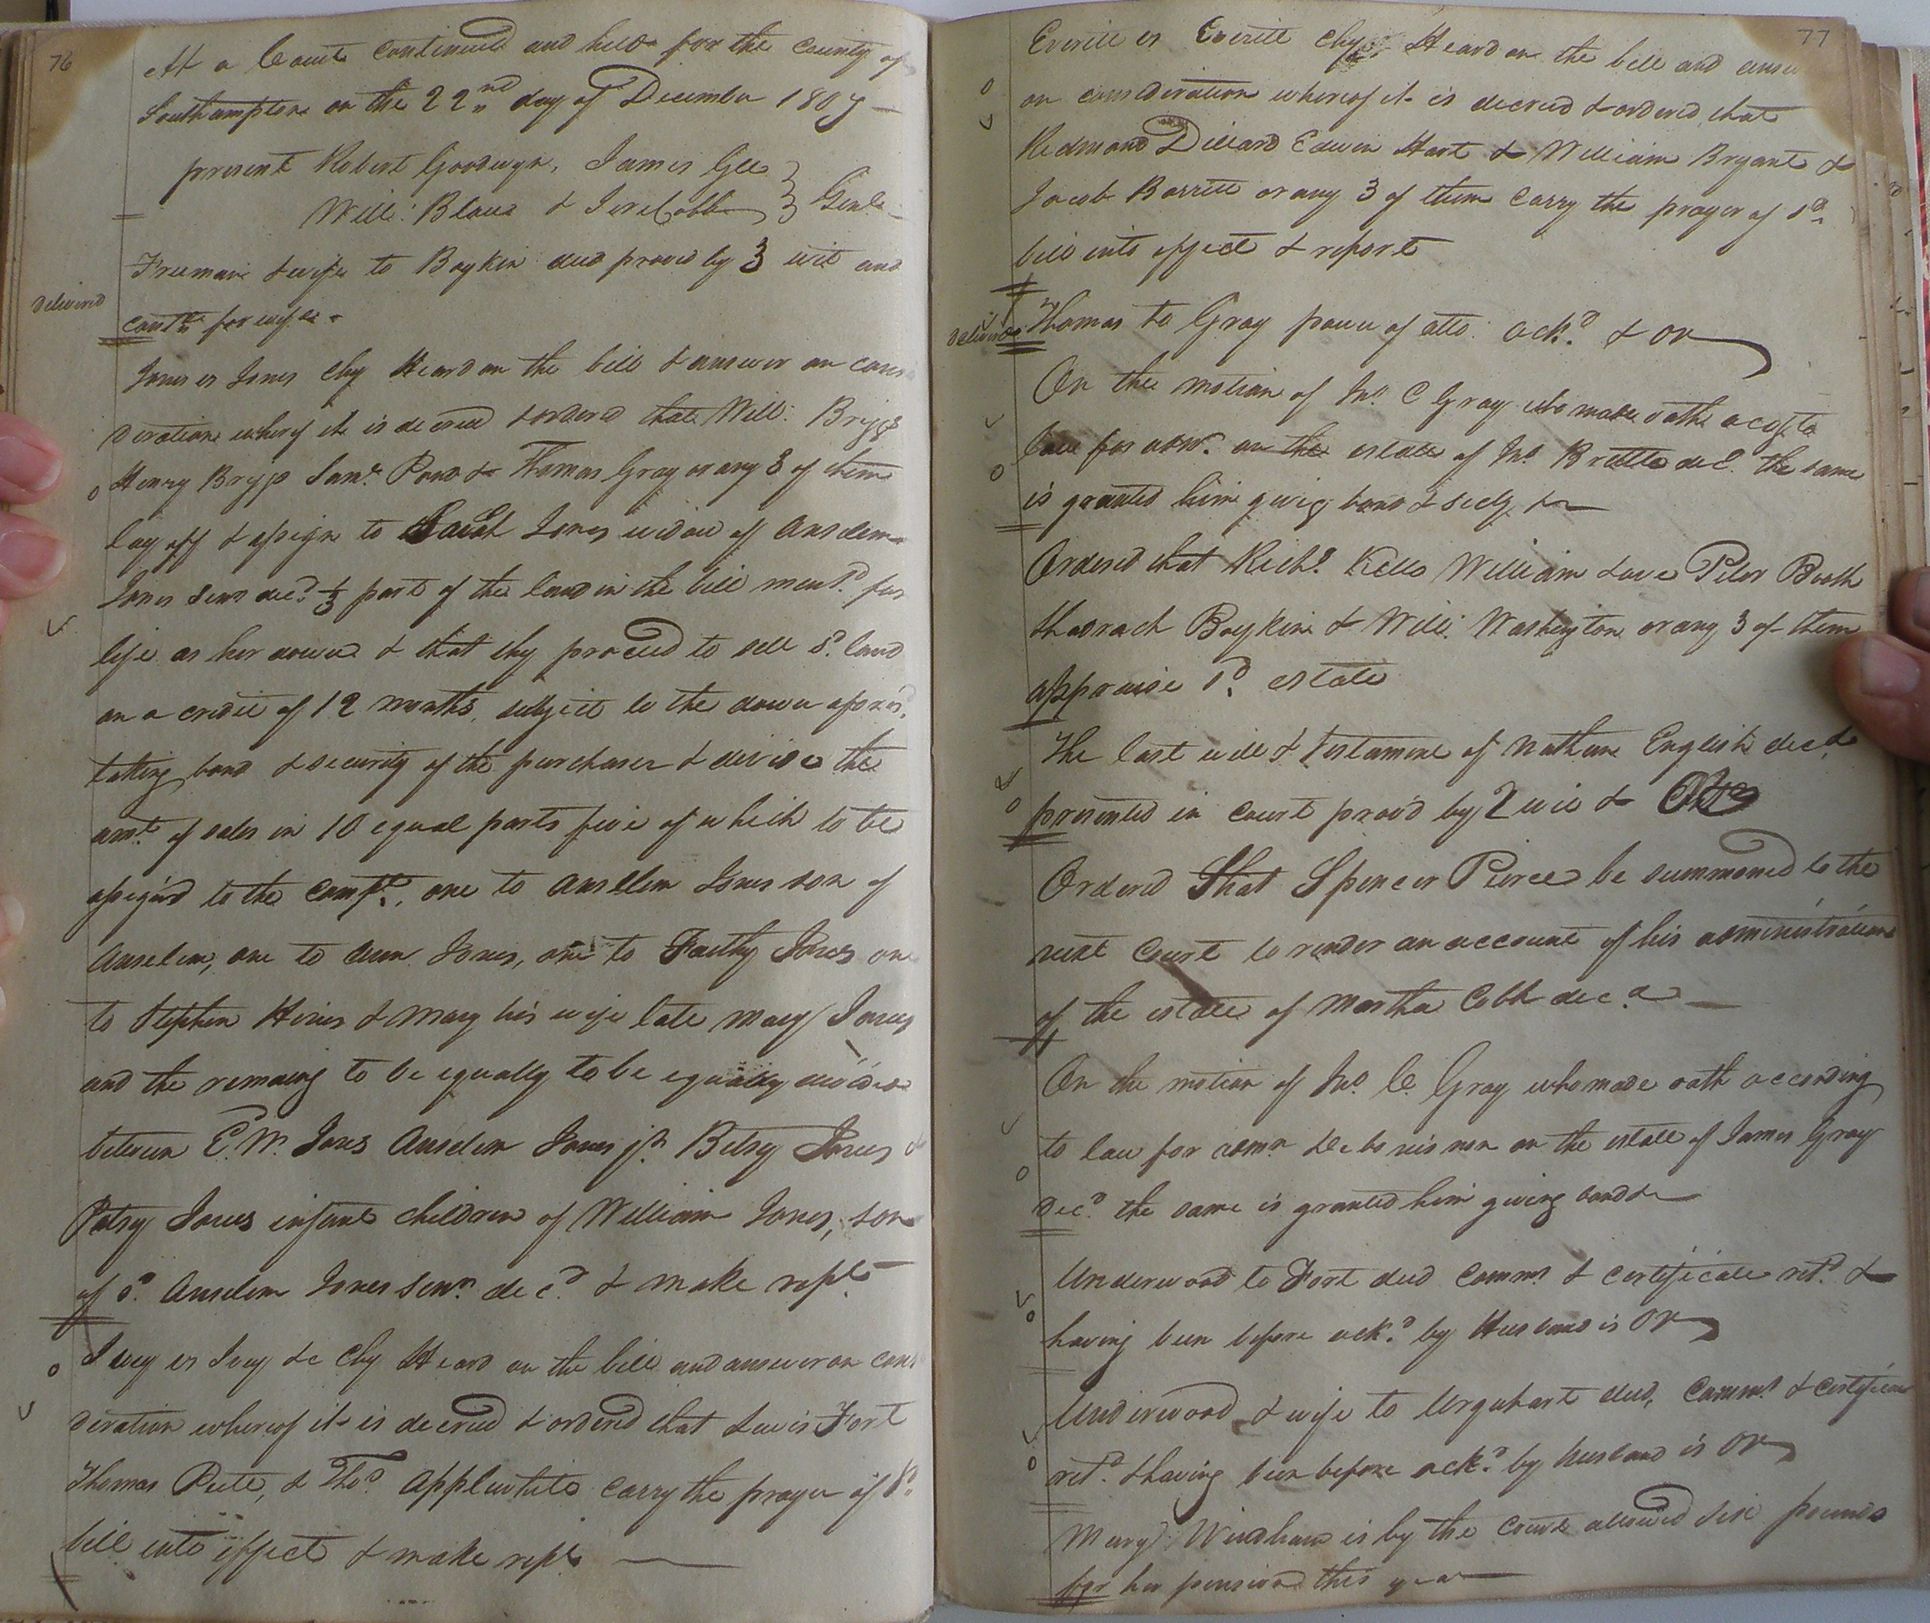 76
At a Court continued and held for the County of
Southampton on the 22nd day of December 1807
present Robert Goodwyn, James Gee
Will: Blow & Jere Cobb Gent
Freeman & wife to Boykin deed proved by 3 wit and
delivered
contd. for wife
Jones vs Jones Chy Heard on the bill & answer on consi
deration whereof it is decreed & ordered that Will: Briggs
Henry Briggs Saml. Pond & Thomas Gray or any 3 of them
lay off & assign to Sarah Jones widow of Anselm
Jones Senr decd. 1/3 part of the land in the bill mentd. for
life as her dower & that they proceed to sell sd. land
on a credit of 12 months, subject to the dower aforsd.
taking bond & security of the purchaser & devide the
amt. of sales in 10 equal parts five of which to be
assignd to the Complt., one to Ansellem Jones son of
Anselem, one to Ann Jones, one to Faithy Jones one
to Stephen Hines & Mary his wife late Mary Jones
and the remaing to be equally to be equally devided
between E. W. Jones Anselem Jones jr. Betsy Jones &
Patsy Jones infant children of William Jones, son
of sd. Anselem Jones Senr. decd. & make rept.
Ivey vs Ivey &c Chy Heard on the bill and answer on consi
deration whereof it is decreed & ordered that Lewis Fort
Thomas Pete, & Thos. Applewhite carry the prayer of sd.
bill into effect & make rept.
77
Everitt vs Everitt Chy Heard on the bill and answer
on consideration whereof it is decreed & ordered that
Redmond Dillard Edwin Hart & William Bryant &
Jacob Barrett or any 3 of them carry the prayer of sd.
bill into effect & report
delivered
Thomas to Gray power of atto. ackd. & OR
On the motion of Jno. C Gray who made oath accg to
Law for admr. on the estate of Jno. Brittle decd. the same
is granted him givig bond & secy &c
Ordered that Richd. Kello William Love Peter Booth
Shadrach Boykin & Will: Washington or any 3 of them
appraise sd. estate
The last will & testament of Nathan English decd.
presented in court provd by 2 wit & OR
Ordered that Spencer Pierce be summoned to the
next Court to render an account of his administration
of the estate of Martha Cobb decd
On the motion of Jno. C. Gray who made oath according
to law for admn de bonis non on the estate of James Gray
decd. the same is granted him giving bond &c
Underwood to Fort deed Commn & certificate retd. &
having been before ackd. by Husband is OR
Underwood & wife to Urquhart deed, Commn & certificate
retd. & having been before ackd. by husband is OR
Mary Windham is by the Court allowed six pounds
for her pension this year